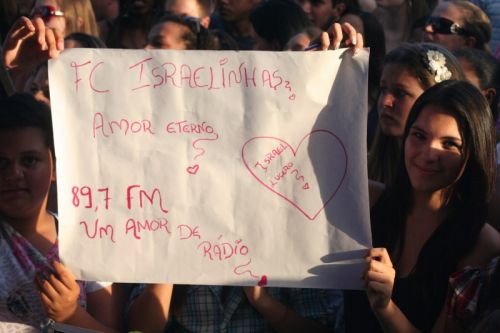 FC ISRAELINHAS
AMOR ETERNO
ISRAEL
LUCERO
89,7 FM
UM AMOR DE
RÁDIO